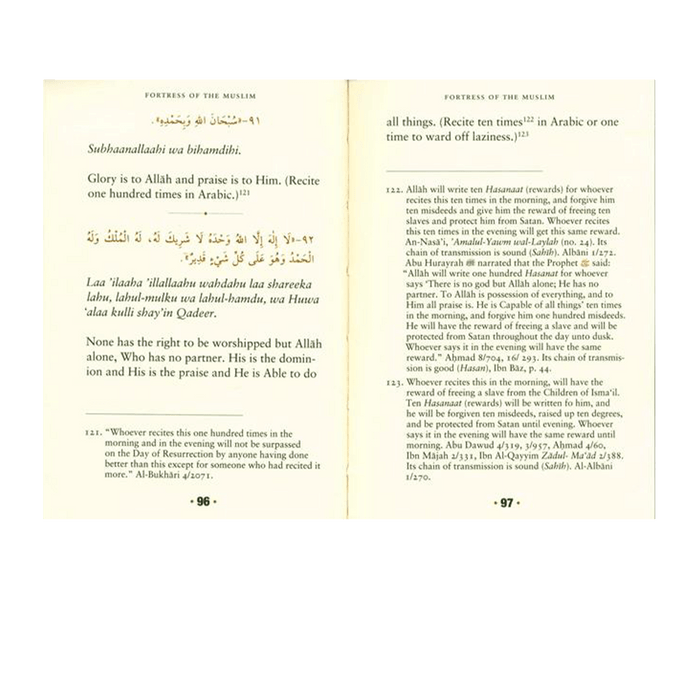 FORTRESS OF THE MUSLIM
٩١-«سُبْحَانَ اللهِ وَبِحَمْدِهِ».
Subhaanallaahi wa bihamdihi.
Glory is to Allāh and praise is to Him. (Recite
one hundred times in Arabic.)¹²¹
٩٢-«لَا إِلَهَ إِلَّا اللهُ وَحْدَهُ لَا شَرِيكَ لَهُ، لَهُ الْمُلْكُ وَلَهُ
الْحَمْدُ وَهُوَ عَلَى كُلِّ شَيْءٍ قَدِيرٌ».
Laa 'ilaaha 'illallaahu wahdahu laa shareeka
lahu, lahul-mulku wa lahul-hamdu, wa Huwa
'alaa kulli shay'in Qadeer.
None has the right to be worshipped but Allāh
alone, Who has no partner. His is the domin-
ion and His is the praise and He is Able to do
121. "Whoever recites this one hundred times in the
morning and in the evening will not be surpassed
on the Day of Resurrection by anyone having done
better than this except for someone who had recited it
more." Al-Bukhāri 4/2071.
• 96 •
FORTRESS OF THE MUSLIM
all things. (Recite ten times¹²² in Arabic or one
time to ward off laziness.)¹²³
122. Allāh will write ten Hasanaat (rewards) for whoever
recites this ten times in the morning, and forgive him
ten misdeeds and give him the reward of freeing ten
slaves and protect him from Satan. Whoever recites
this ten times in the evening will get this same reward.
An-Nasā'i, 'Amalul-Yawm wal-Laylah (no. 24). Its
chain of transmission is sound (Sahīh). Albāni 1/272.
Abu Hurayrah narrated that the Prophet ﷺ said:
"Allāh will write one hundred Hasanat for whoever
says 'There is no god but Allāh alone; He has no
partner. To Allāh is possession of everything, and to
Him all praise is. He is Capable of all things' ten times
in the morning, and forgive him one hundred misdeeds.
He will have the reward of freeing a slave and will be
protected from Satan throughout the day unto dusk.
Whoever says it in the evening will have the same
reward." Aḥmad 8/704, 16/ 293. Its chain of transmis-
sion is good (Hasan), Ibn Bāz, p. 44.
123. Whoever recites this in the morning, will have the
reward of freeing a slave from the Children of Isma'il.
Ten Hasanaat (rewards) will be written fo him, and
he will be forgiven ten misdeeds, raised up ten degrees,
and be protected from Satan until evening. Whoever
says it in the evening will have the same reward until
morning. Abu Dawud 4/319, 3/957, Aḥmad 4/60,
Ibn Mājah 2/331, Ibn Al-Qayyim Zādul- Ma'ād 2/388.
Its chain of transmission is sound (Sahīh). Al-Albāni
1/270.
• 97 •